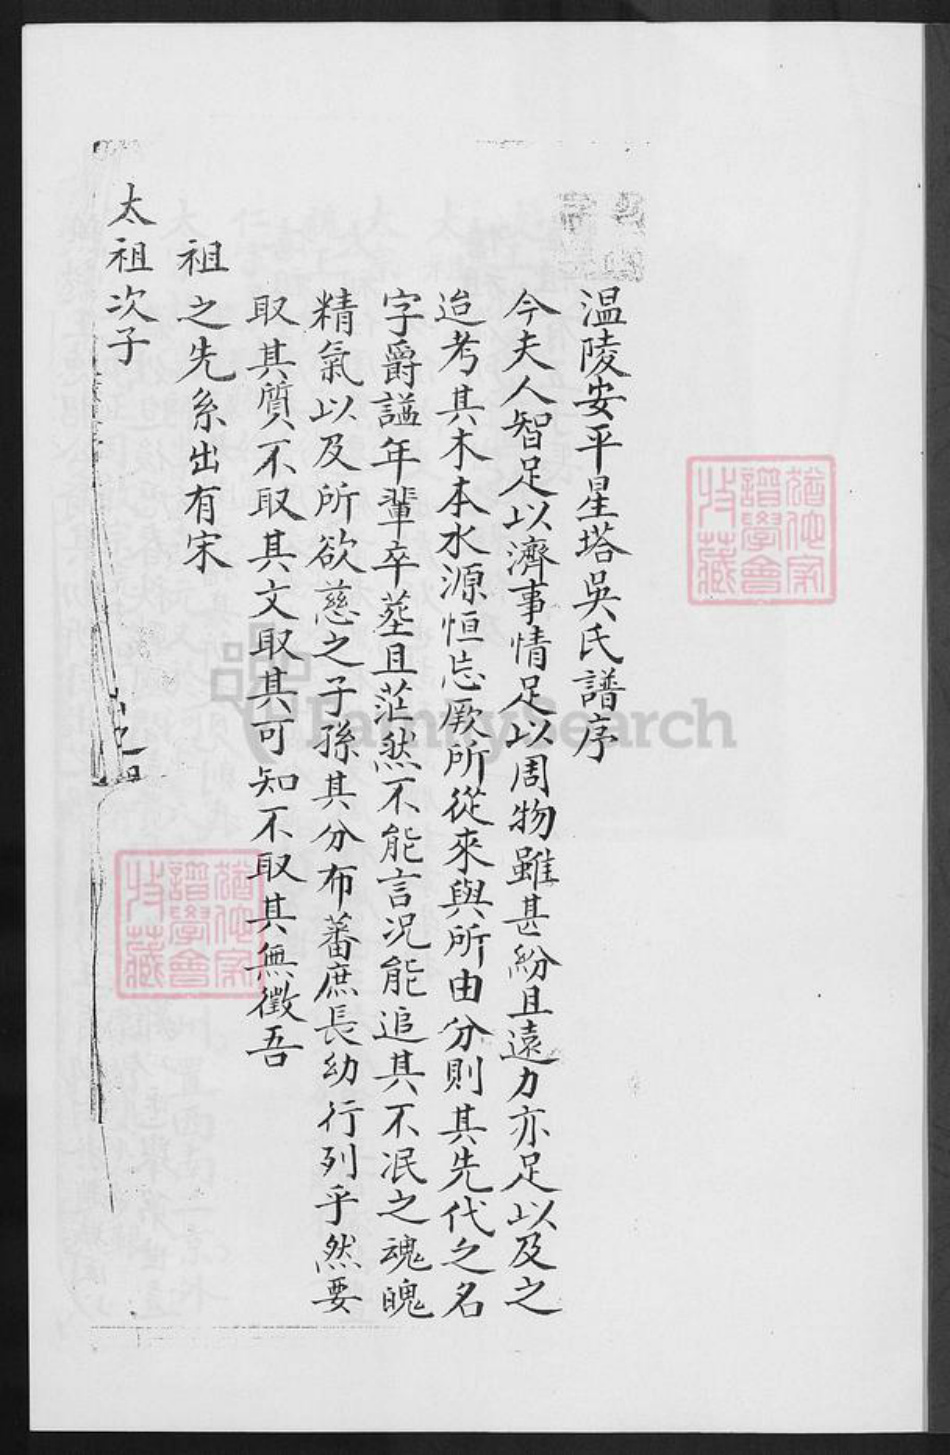 温陵安平星塔吳氏譜序
今夫人智足以濟事情足以周物雖甚紛且遠力亦足以及之
迨考其木本水源恒忘厥所從來與所由分則其先代之名
字爵謚年輩卒塟且茫然不能言况能追其不泯之魂魄
精氣以及所欲慈之子孫其分布蕃庶長幼行列乎然要
取其質不取其文取其可知不取其無徵吾
祖之先系出有宋
太祖次子
譜學會
收藏
譜學會
收藏
FamilySearch